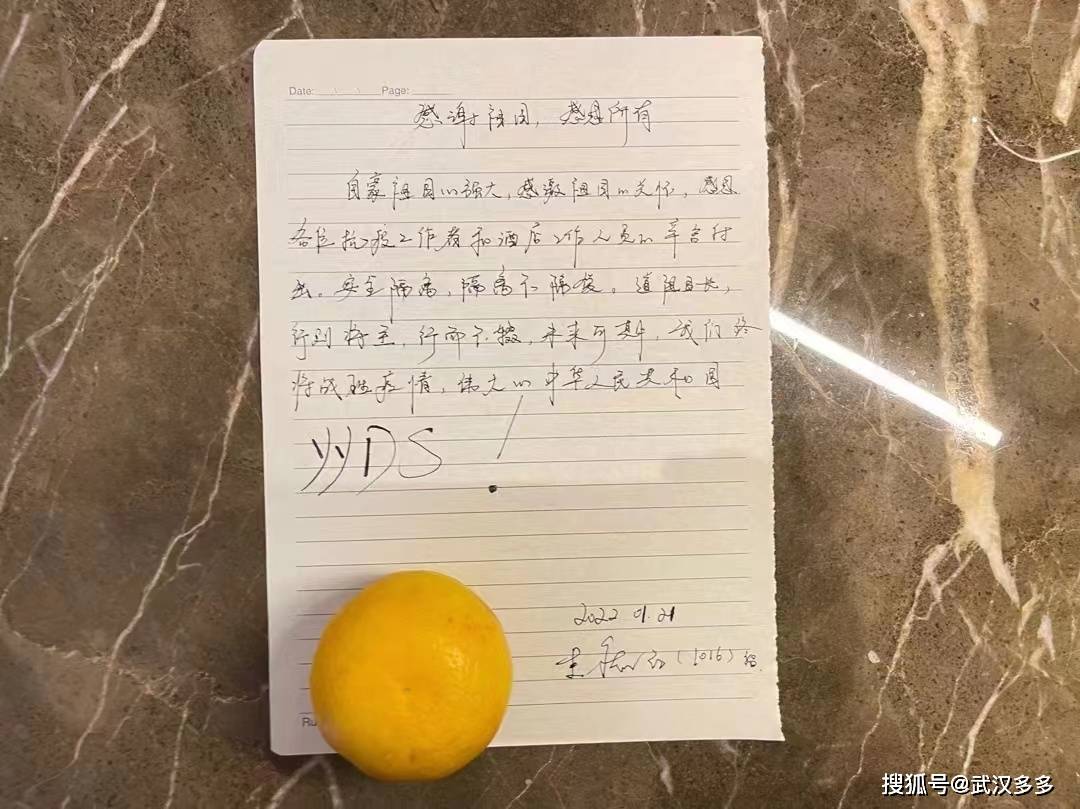 Date: Page:
感谢祖国，感恩所有
自豪祖国的强大，感激祖国的关怀，感恩
各位抗疫工作者和酒店工作人员的辛苦付
出。安全隔离，隔离不隔爱。道阻且长，
行则将至，行而不辍，未来可期，我们终
将战胜疫情，伟大的中华人民共和国
YYDS！
2022 01.21
(1016)
Ru
搜狐号@武汉多多